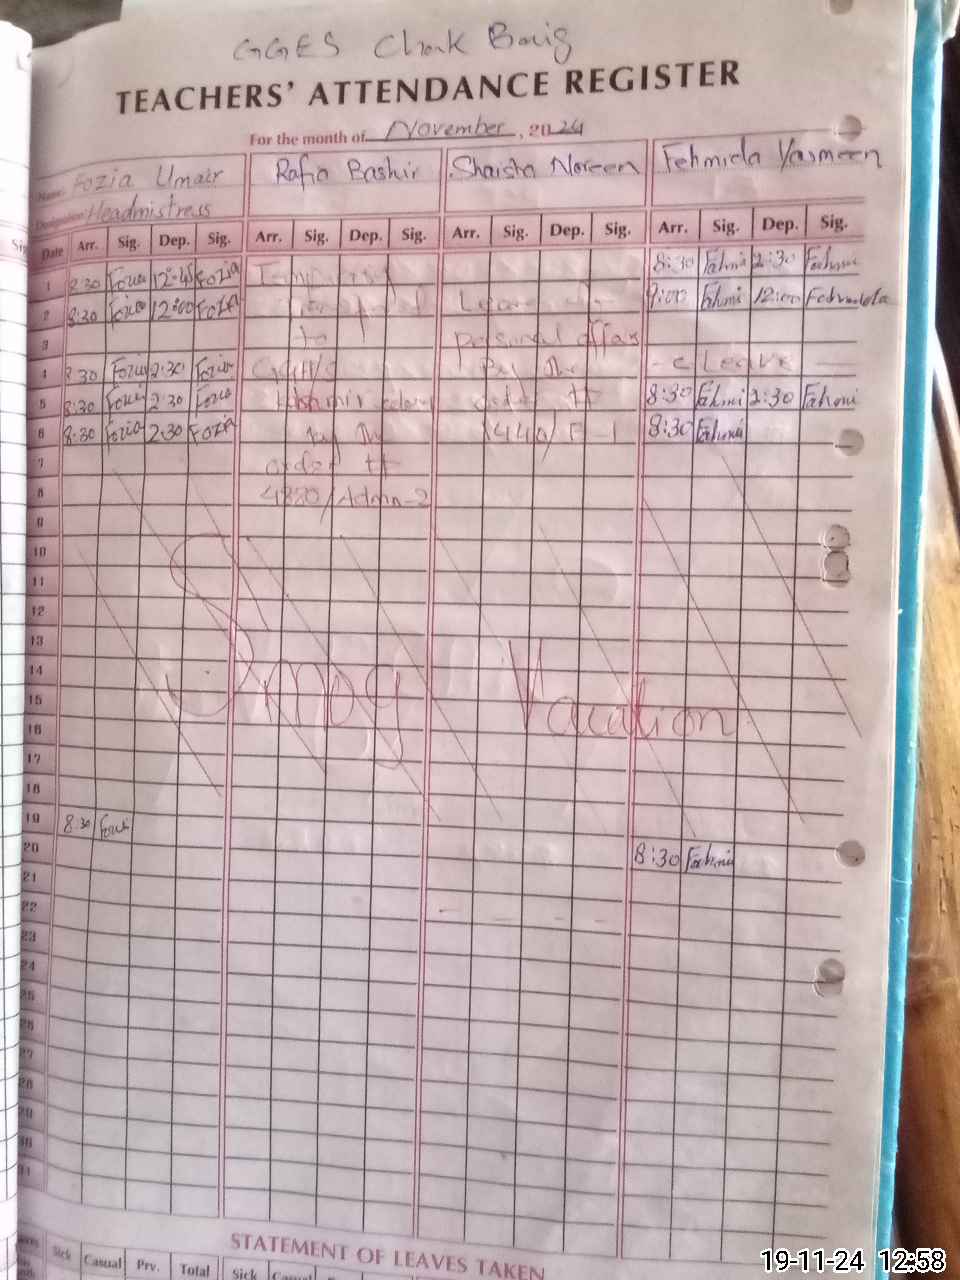 GGES Chak Baig
TEACHERS' ATTENDANCE REGISTER
For the month of November, 2024
Name: Fozia Umair Rafia Bashir Shaista Noreen Fehmida Yasmeen
Designation: Headmistress
Date Arr. Sig. Dep. Sig. Arr. Sig. Dep. Sig. Arr. Sig. Dep. Sig. Arr. Sig. Dep. Sig.
1 8:30 Fozia 12:45 Fozia 8:30 Fahmi 2:30 Fahmi
2 8:30 Fozia 12:00 Fozia Leave 9:00 Fahmi 12:00 Fehmida
3 to personal affair
4 8:30 Fozia 2:30 Fozia By the - C Leave -
5 8:30 Fozia 2:30 Fozia order # 8:30 Fahmi 2:30 Fahmi
6 8:30 Fozia 2:30 Fozia by the 1440/E-1 8:30 Fahmi
7 order #
8 4820/Admn-2
9
10
11
12
13
14 Smog Vacation
15
16
17
18
19 8:30 Fozia
20 8:30 Fahmi
21
22
23
24
25
26
27
28
29
30
31
STATEMENT OF LEAVES TAKEN
Sick Casual Prv. Total Sick Casual
19-11-24 12:58